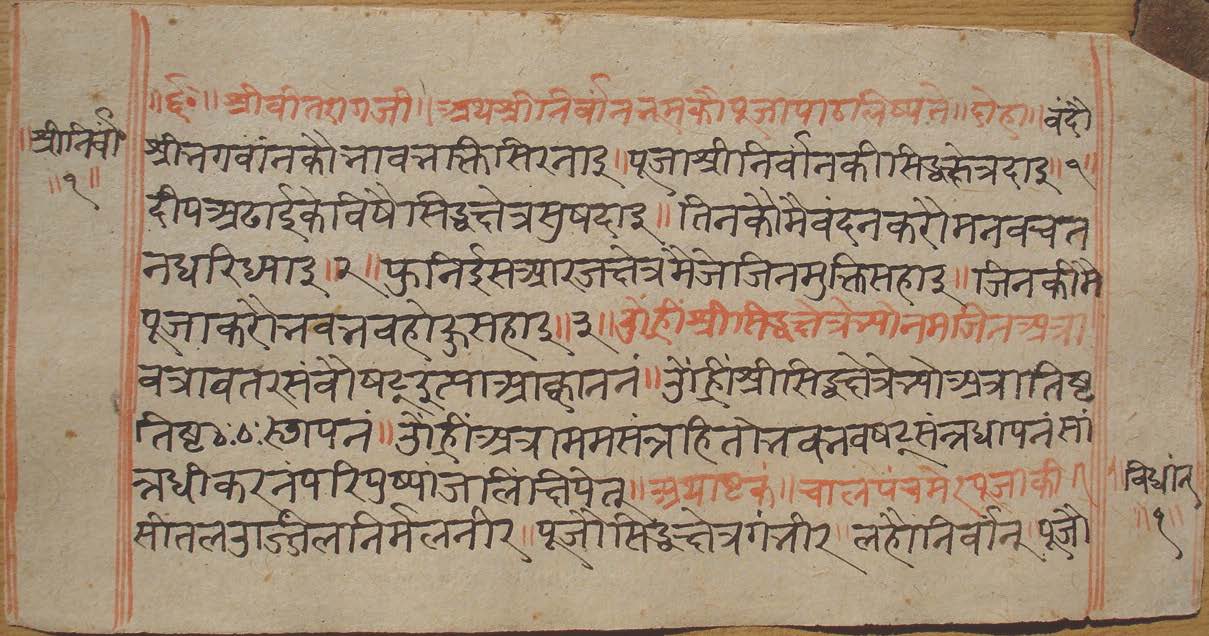 ॥ र्द्द० ॥ श्रीवीतरागजी ॥ अथश्रीनिर्वाननसकौपूजापाठलिष्यते ॥ दोहा ॥ वंदौ
श्रीनिर्वा
॥ १ ॥
श्रीभगवांनकौभावभक्तिसिरनाइ ॥ पूजाश्रीनिर्वानकीसिद्धक्षेत्रदाइ ॥ १ ॥
दीपअढाईकेविषैसिद्धक्षेत्रसुषदाइ ॥ तिनकौमैवंदनकरौमनवचत
नधरिध्याइ ॥ २ ॥ फुनिईसआरजक्षेत्रमैजेजिनमुक्तिसहाइ ॥ जिनकीमै
पूजाकरौभवभवहोहुसहाइ ॥ ३ ॥ ॐह्रींश्रीसिद्धक्षेत्रेभ्योनमजिनअत्रा
वत्रावतरसंवौषट्इत्याआह्वाननं ॥ ॐह्रींश्रीसिद्धक्षेत्रेभ्योअत्रातिष्ट
तिष्टठःठःस्थापनं ॥ ॐह्रींअत्राममसंन्नहितोभवभवषट्संन्नधापनंसां
न्नधीकरनंपरिपुष्पांजलिंक्षिपेत् ॥ अथाष्टकं ॥ चालपंचमेरपूजाकी ॥
विधांन
॥ १
सीतलउर्ज्जलनिर्मलनीर ॥ पूजौसिद्धक्षेत्रगंभीर लहौनिर्वान् पूजौ